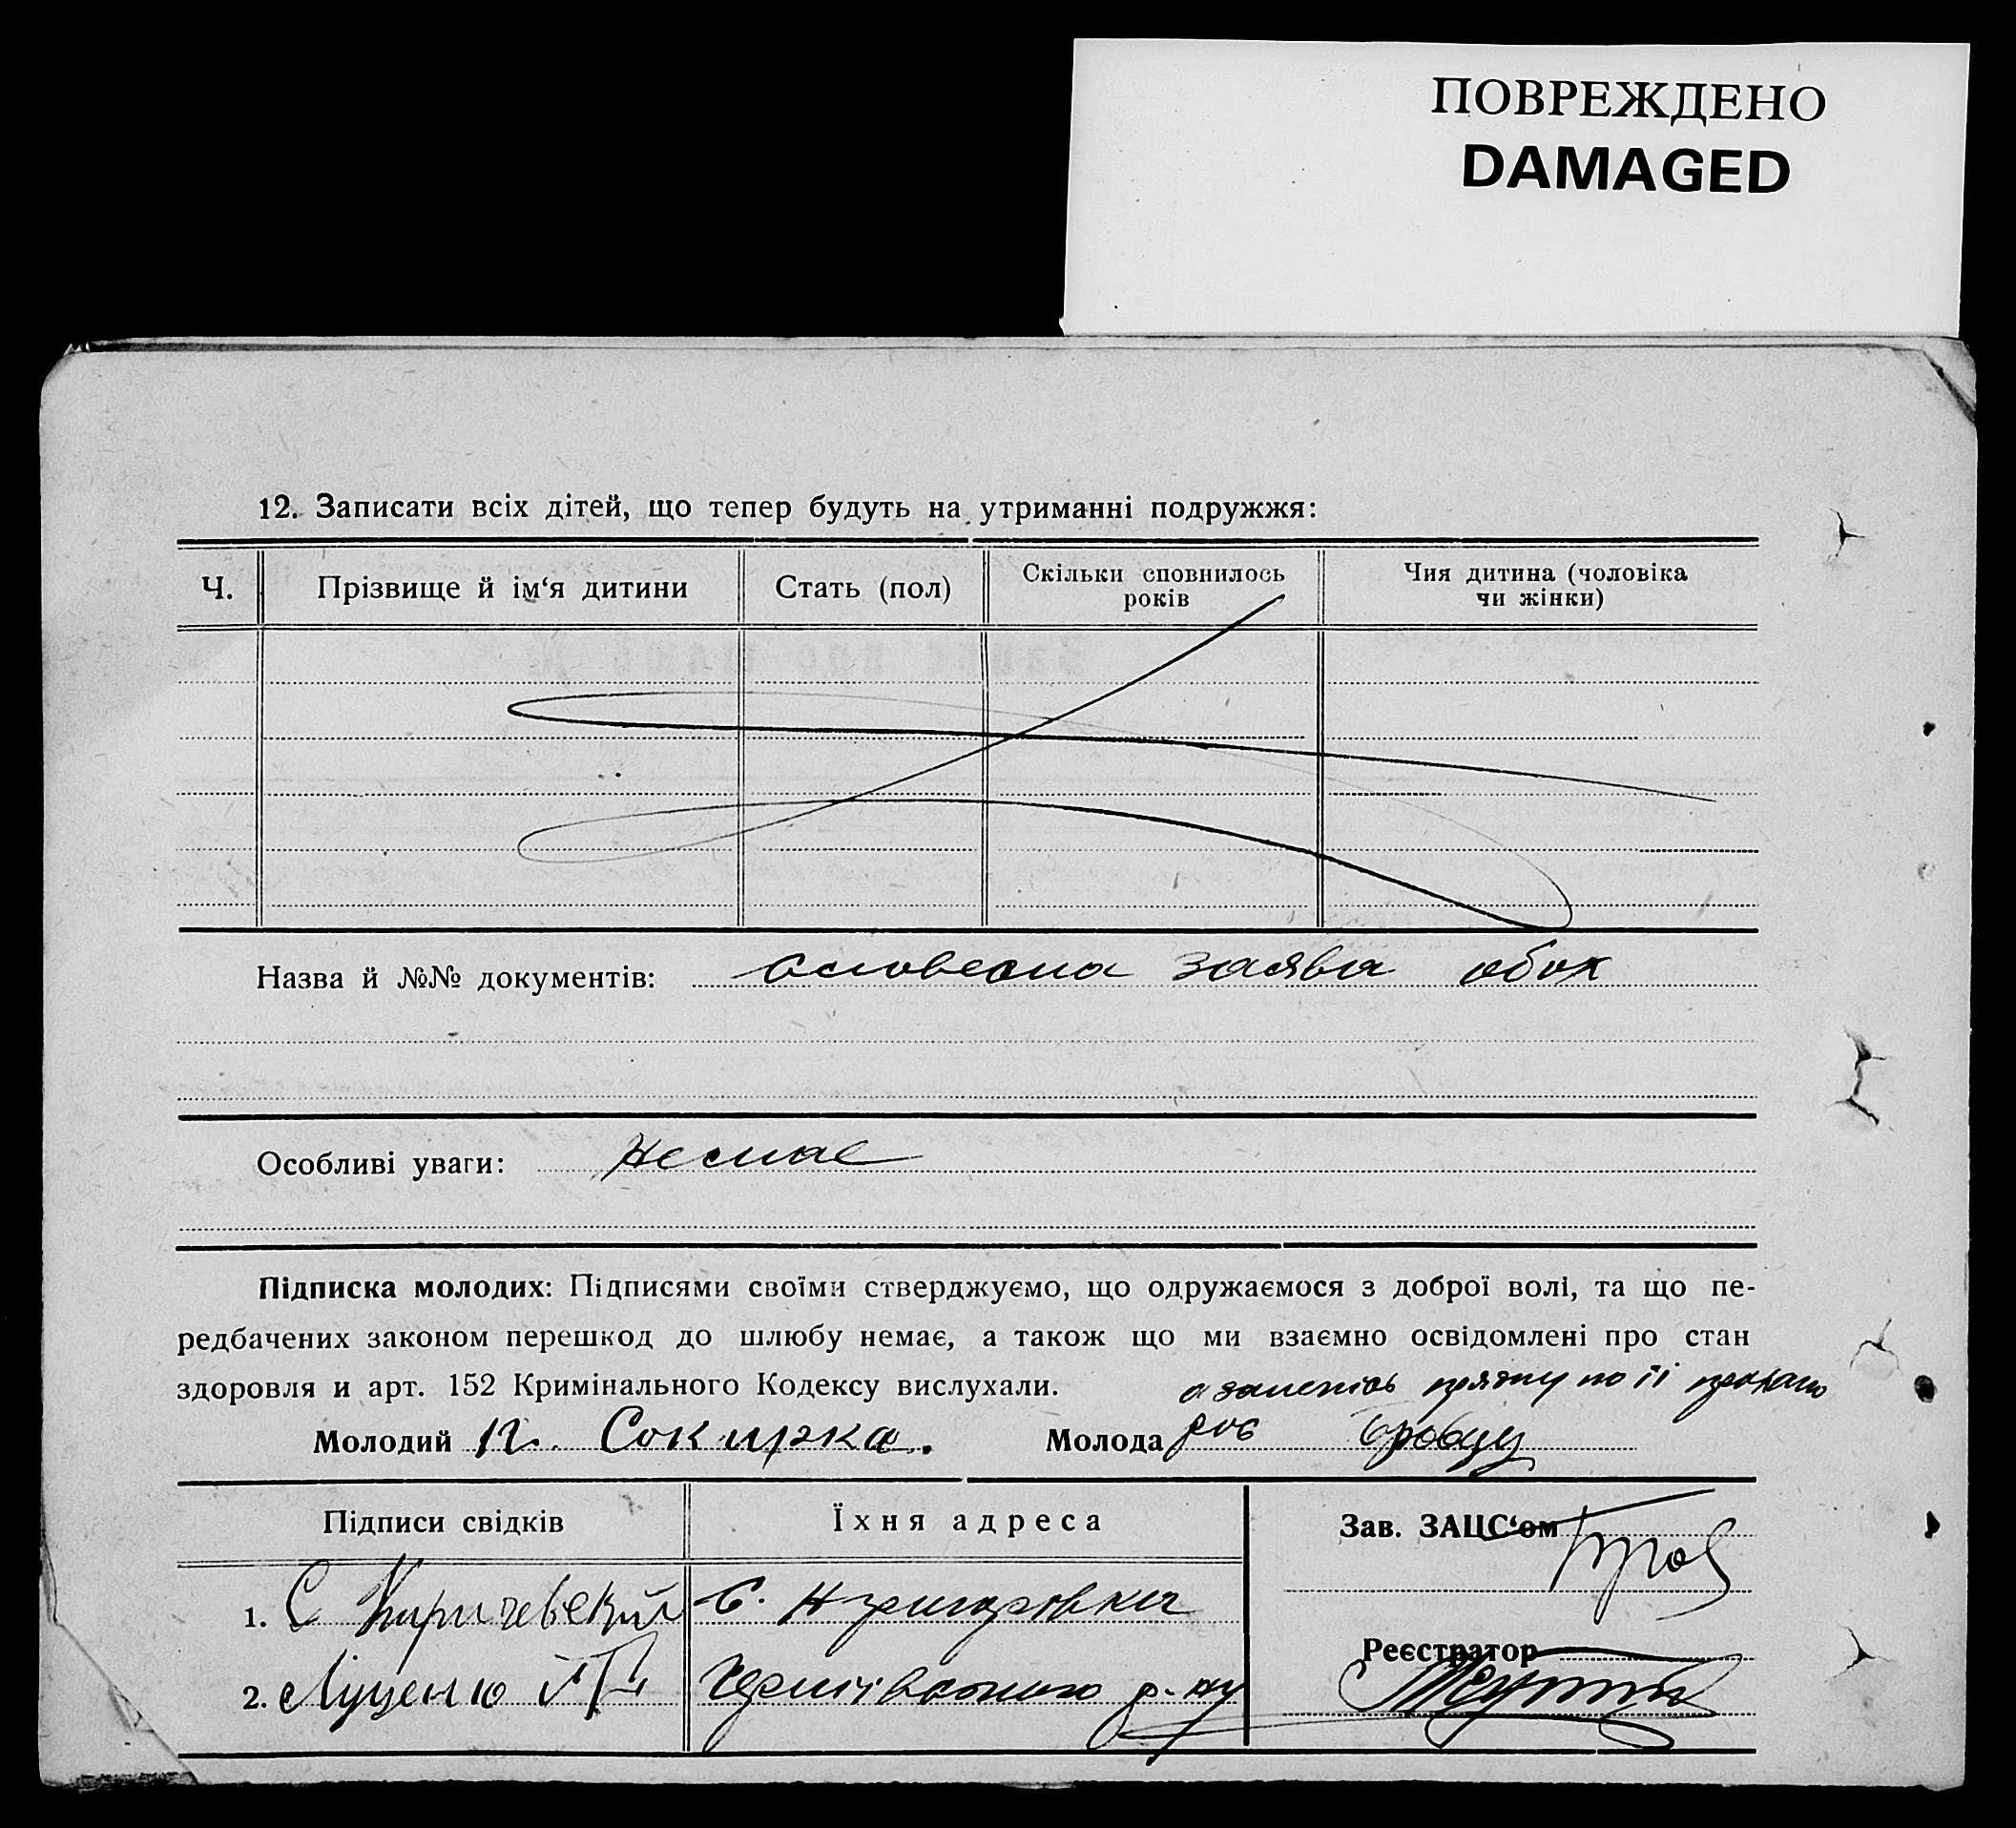 ПОВРЕЖДЕНО
DAMAGED
12. Записати всіх дітей, що тепер будуть на утриманні подружжя:
Ч. Прізвище й ім‘я дитини Стать (пол) Скільки сповнилось років Чия дитина (чоловіка чи жінки)
Назва й №№ документів: Словесна заява обох
Особливі уваги: Немає
Підписка молодих: Підписями своїми стверджуємо, що одружаємося з доброї волі, та що пе-
редбачених законом перешкод до шлюбу немає, а також що ми взаємно освідомлені про стан
здоровля и арт. 152 Кримінального Кодексу вислухали.
а за по її
Молодий Сокирка. Молода
Підписи свідків Їхня адреса Зав. ЗАЦС‘ом
1. С Киричевский с.
Реєстратор
2. Луценко р-ну